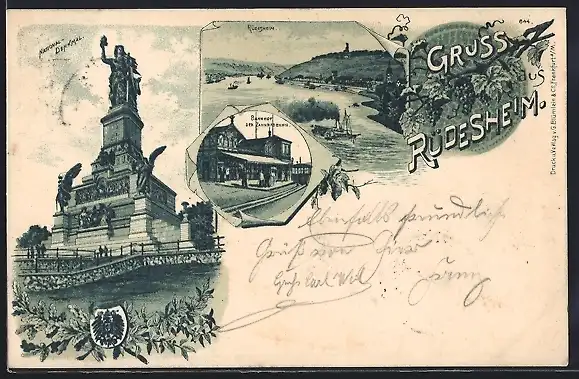 NATIONAL-DENKMAL.
RÜDESHEIM.
BAHNHOF
DER ZAHNRADBAHN.
644.
GRUSS
AUS
RÜDESHEIM.
Druck u. Verlag v. G. Blümlein & Co., Frankfurt a/M.
Ebenfalls freundlich
Gruß von